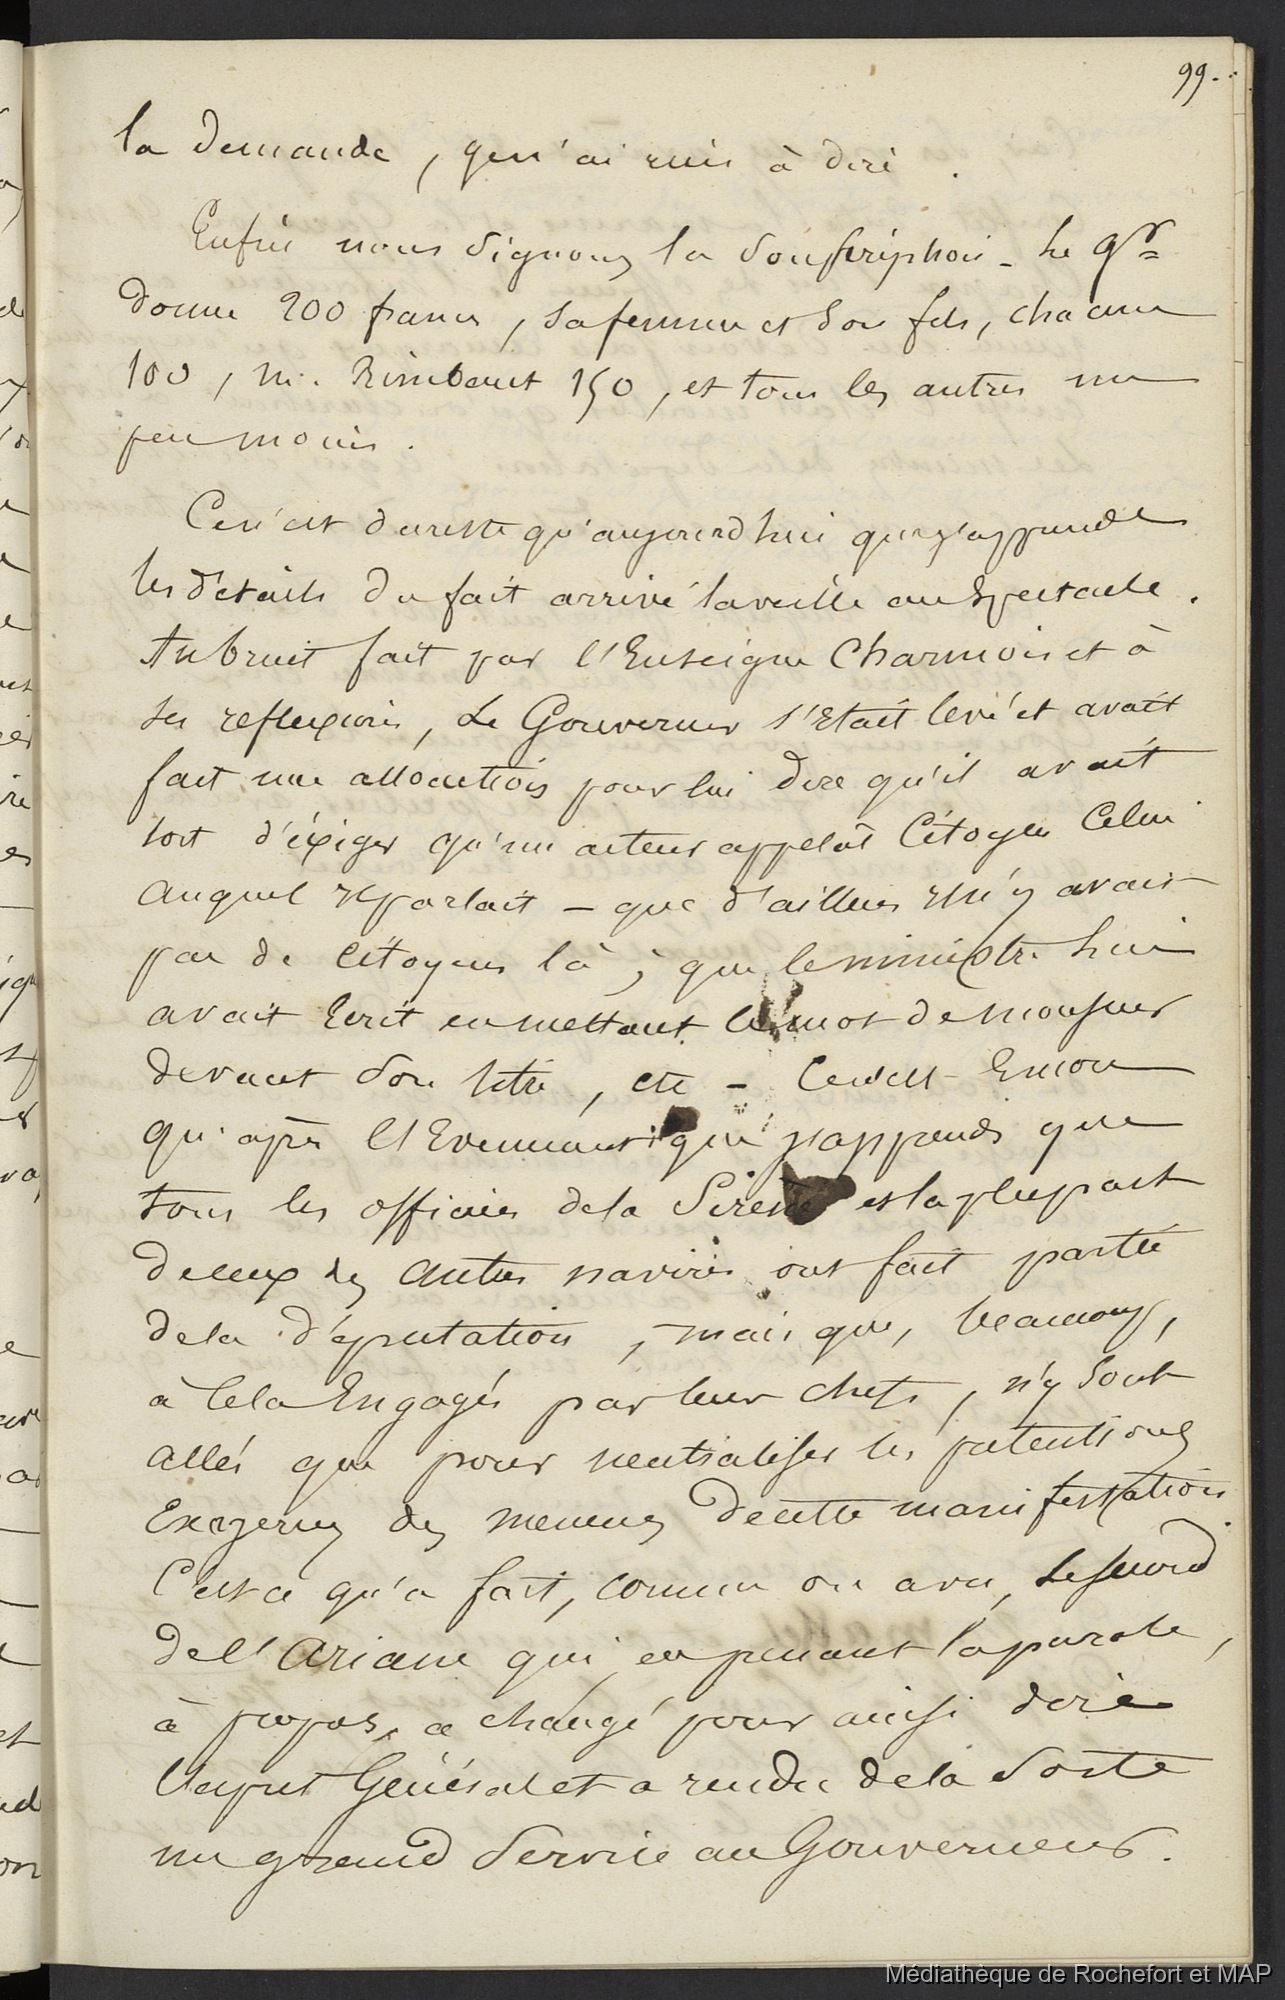 99.
la demande, qu'en n'ai rien à dire.
Enfin nous signons la souscription - Le gr
donne 200 francs, sa femme et son fils, chacun
100, m. Rimbaut 150, et tous les autres un
peu moins.
Ce n'est du reste qu'aujourd'hui que j'apprends
les détails du fait arrivé la veille au spectacle.
Au bruit fait par l'Enseigne Charmois et à
ses reflexions, Le Gouverneur s'etait levé et avait
fait une allocution pour lui dire qu'il avait
tort d'éxiger qu'un acteur appelât Citoyen Celui
auquel il parlait - que d'ailleurs il n'y avait
pas de Citoyens là ; que le ministre lui
avait Ecrit en mettant le mot de Monsieur
devant son titre, etc - Ce n'est Encore
qu'après l'Evenement que j'apprends que
tous les officiers de la Sirene et la plupart
de ceux des autres navires ont fait partie
de la députation, mais que, beaucoup,
à Cela Engagés par leur chefs, n'y sont
allés que pour neutraliser les prétentions
Exagerées des meneurs de cette manifestation.
C'est ce qu'a fait, comme on a vu, Le second
de l'Ariane qui, en prenant la parole,
à propos, a changé pour ainsi dire
l'esprit Général et a rendu de la Sorte
un grand Service au Gouverneur.
Médiathèque de Rochefort et MAP